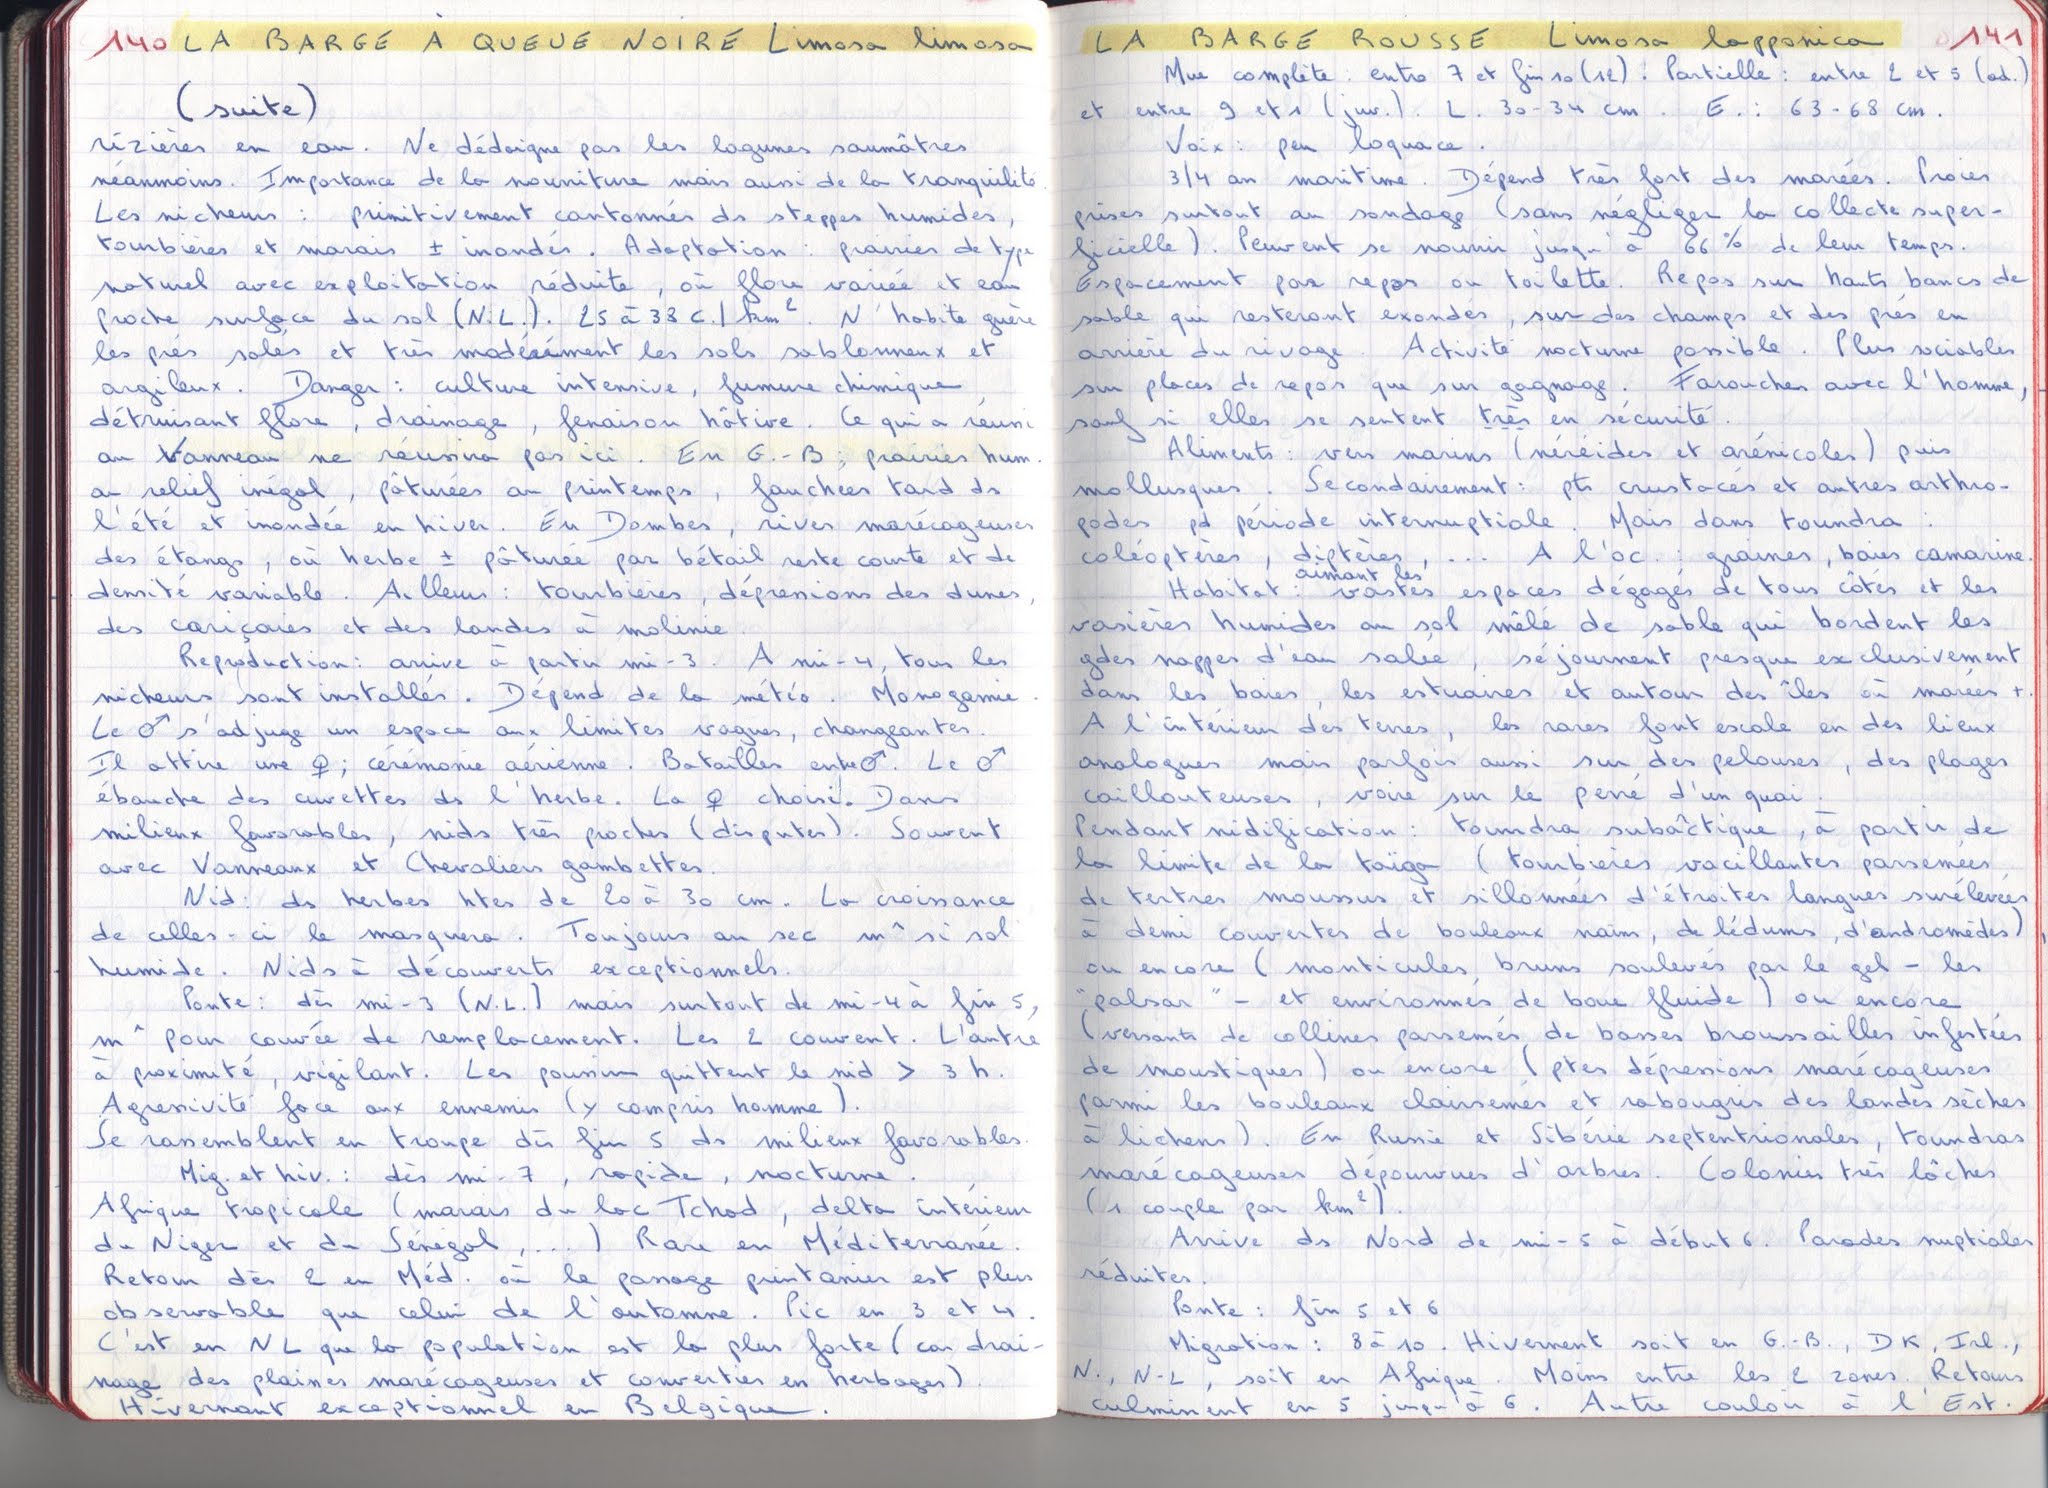 140 LA BARGE À QUEUE NOIRE Limosa limosa
(suite)
rizières en eau. Ne dédaigne pas les lagunes saumâtres
néanmoins. Importance de la nourriture mais aussi de la tranquilité.
Les nicheurs : primitivement cantonnés ds steppes humides,
tourbières et marais ± inondés. Adaptation : prairies de type
naturel avec exploitation réduite, où flore variée et eau
proche surface du sol (N.L.). 25 à 33 c./km². N'habite guère
les prés salés et très modérément les sols sablonneux et
argileux. Danger : culture intensive, fumure chimique
détruisant flore, drainage, fenaison hâtive. Ce qui a réussi
au Vanneau ne réussira pas ici. En G.-B ; prairies hum.
au relief inégal, pâturées au printemps, fauchées tard ds
l'été et inondée en hiver. En Dombes, rives marécageuses
des étangs, où herbe ± pâturée par bétail reste courte et de
densité variable. Ailleurs : tourbières, dépressions des dunes,
des cariçaies et des landes à molinie.
Reproduction : arrive à partir mi-3. A mi-4, tous les
nicheurs sont installés. Dépend de la météo. Monogamie.
Le ♂ s'adjuge un espace aux limites vagues, changeantes.
Il attire une ♀ ; cérémonie aérienne. Batailles entre ♂. Le ♂
ébauche des cuvettes ds l'herbe. La ♀ choisi. Dans
milieux favorables, nids très proches (disputes). Souvent
avec Vanneaux et Chevaliers gambettes.
Nid : ds herbes htes de 20 à 30 cm. La croissance
de celles-ci le masquera. Toujours au sec m^ si sol
humide. Nids à découverts exceptionnels.
Ponte : dès mi-3 (N.L.) mais surtout de mi-4 à fin 5,
m^ pour couvée de remplacement. Les 2 couvent. L'autre
à proximité, vigilant. Les poussins quittent le nid > 3 h.
Agressivité face aux ennemis (y compris homme).
Se rassemblent en troupe dès fin 5 ds milieux favorables.
Mig. et hiv. : dès mi-7, rapide, nocturne.
Afrique tropicale (marais du lac Tchad, delta intérieur
du Niger et du Sénégal, ...) Rare en Méditerranée.
Retour dès 2 en Méd. où le passage printanier est plus
observable que celui de l'automne. Pic en 3 et 4.
C'est en NL que la population est la plus forte (car drai-
nage des plaines marécageuses et converties en herbages).
Hivernant exceptionnel en Belgique.
LA BARGE ROUSSE Limosa lapponica 141
Mue complète : entre 7 et fin 10 (12). Partielle : entre 2 et 5 (ad.)
et entre 9 et 1 (juv.). L. 30-34 cm. E. : 63-68 cm.
Voix : peu loquace.
3/4 an maritime. Dépend très fort des marées. Proies
prises surtout au sondage (sans négliger la collecte super-
ficielle). Peuvent se nourrir jusqu'à 66 % de leur temps.
Espacement par repos ou toilette. Repos sur hauts bancs de
sable qui resteront exondés, sur des champs et des prés en
arrière du rivage. Activité nocturne possible. Plus sociables
sur places de repos que sur gagnage. Farouches avec l'homme,
sauf si elles se sentent très en sécurité.
Aliments : vers marins (néréides et arénicoles) puis
mollusques. Secondairement : pts crustacés et autres arthro-
podes pd période internuptiale. Mais dans toundra :
coléoptères, diptères, ... A l'oc. : graines, baies camarine.
Habitat : aimant les vastes espaces dégagés de tous côtés et les
vasières humides au sol mêlé de sable qui bordent les
gdes nappes d'eau salée, séjournent presque exclusivement
dans les baies, les estuaires et autour des îles où marées +.
A l'intérieur des terres, les rares font escale en des lieux
analogues mais parfois aussi sur des pelouses, des plages
caillouteuses, voire sur le perré d'un quai.
Pendant nidification : toundra subarctique, à partir de
la limite de la taïga (tourbières vacillantes parsemées
de tertres moussus et sillonnées d'étroites langues surélevées
à demi couvertes de bouleaux nains, de lédums, d'andromèdes)
ou encore (monticules bruns soulevés par le gel - les
"palsar" - et environnés de boue fluide) ou encore
(versants de collines parsemés de basses broussailles infestées
de moustiques) ou encore (ptes dépressions marécageuses
parmi les bouleaux clairsemés et rabougris des landes sèches
à lichens). En Russie et Sibérie septentrionales, toundras
marécageuses dépourvues d'arbres. Colonies très lâches
(1 couple par km²).
Arrive ds Nord de mi-5 à début 6. Parades nuptiales
réduites.
Ponte : fin 5 et 6
Migration : 8 à 10. Hivernent soit en G.-B., DK, Irl.,
N., N-L, soit en Afrique. Moins entre les 2 zones. Retours
culminent en 5 jusqu'à 6. Autre couloir à l'Est.